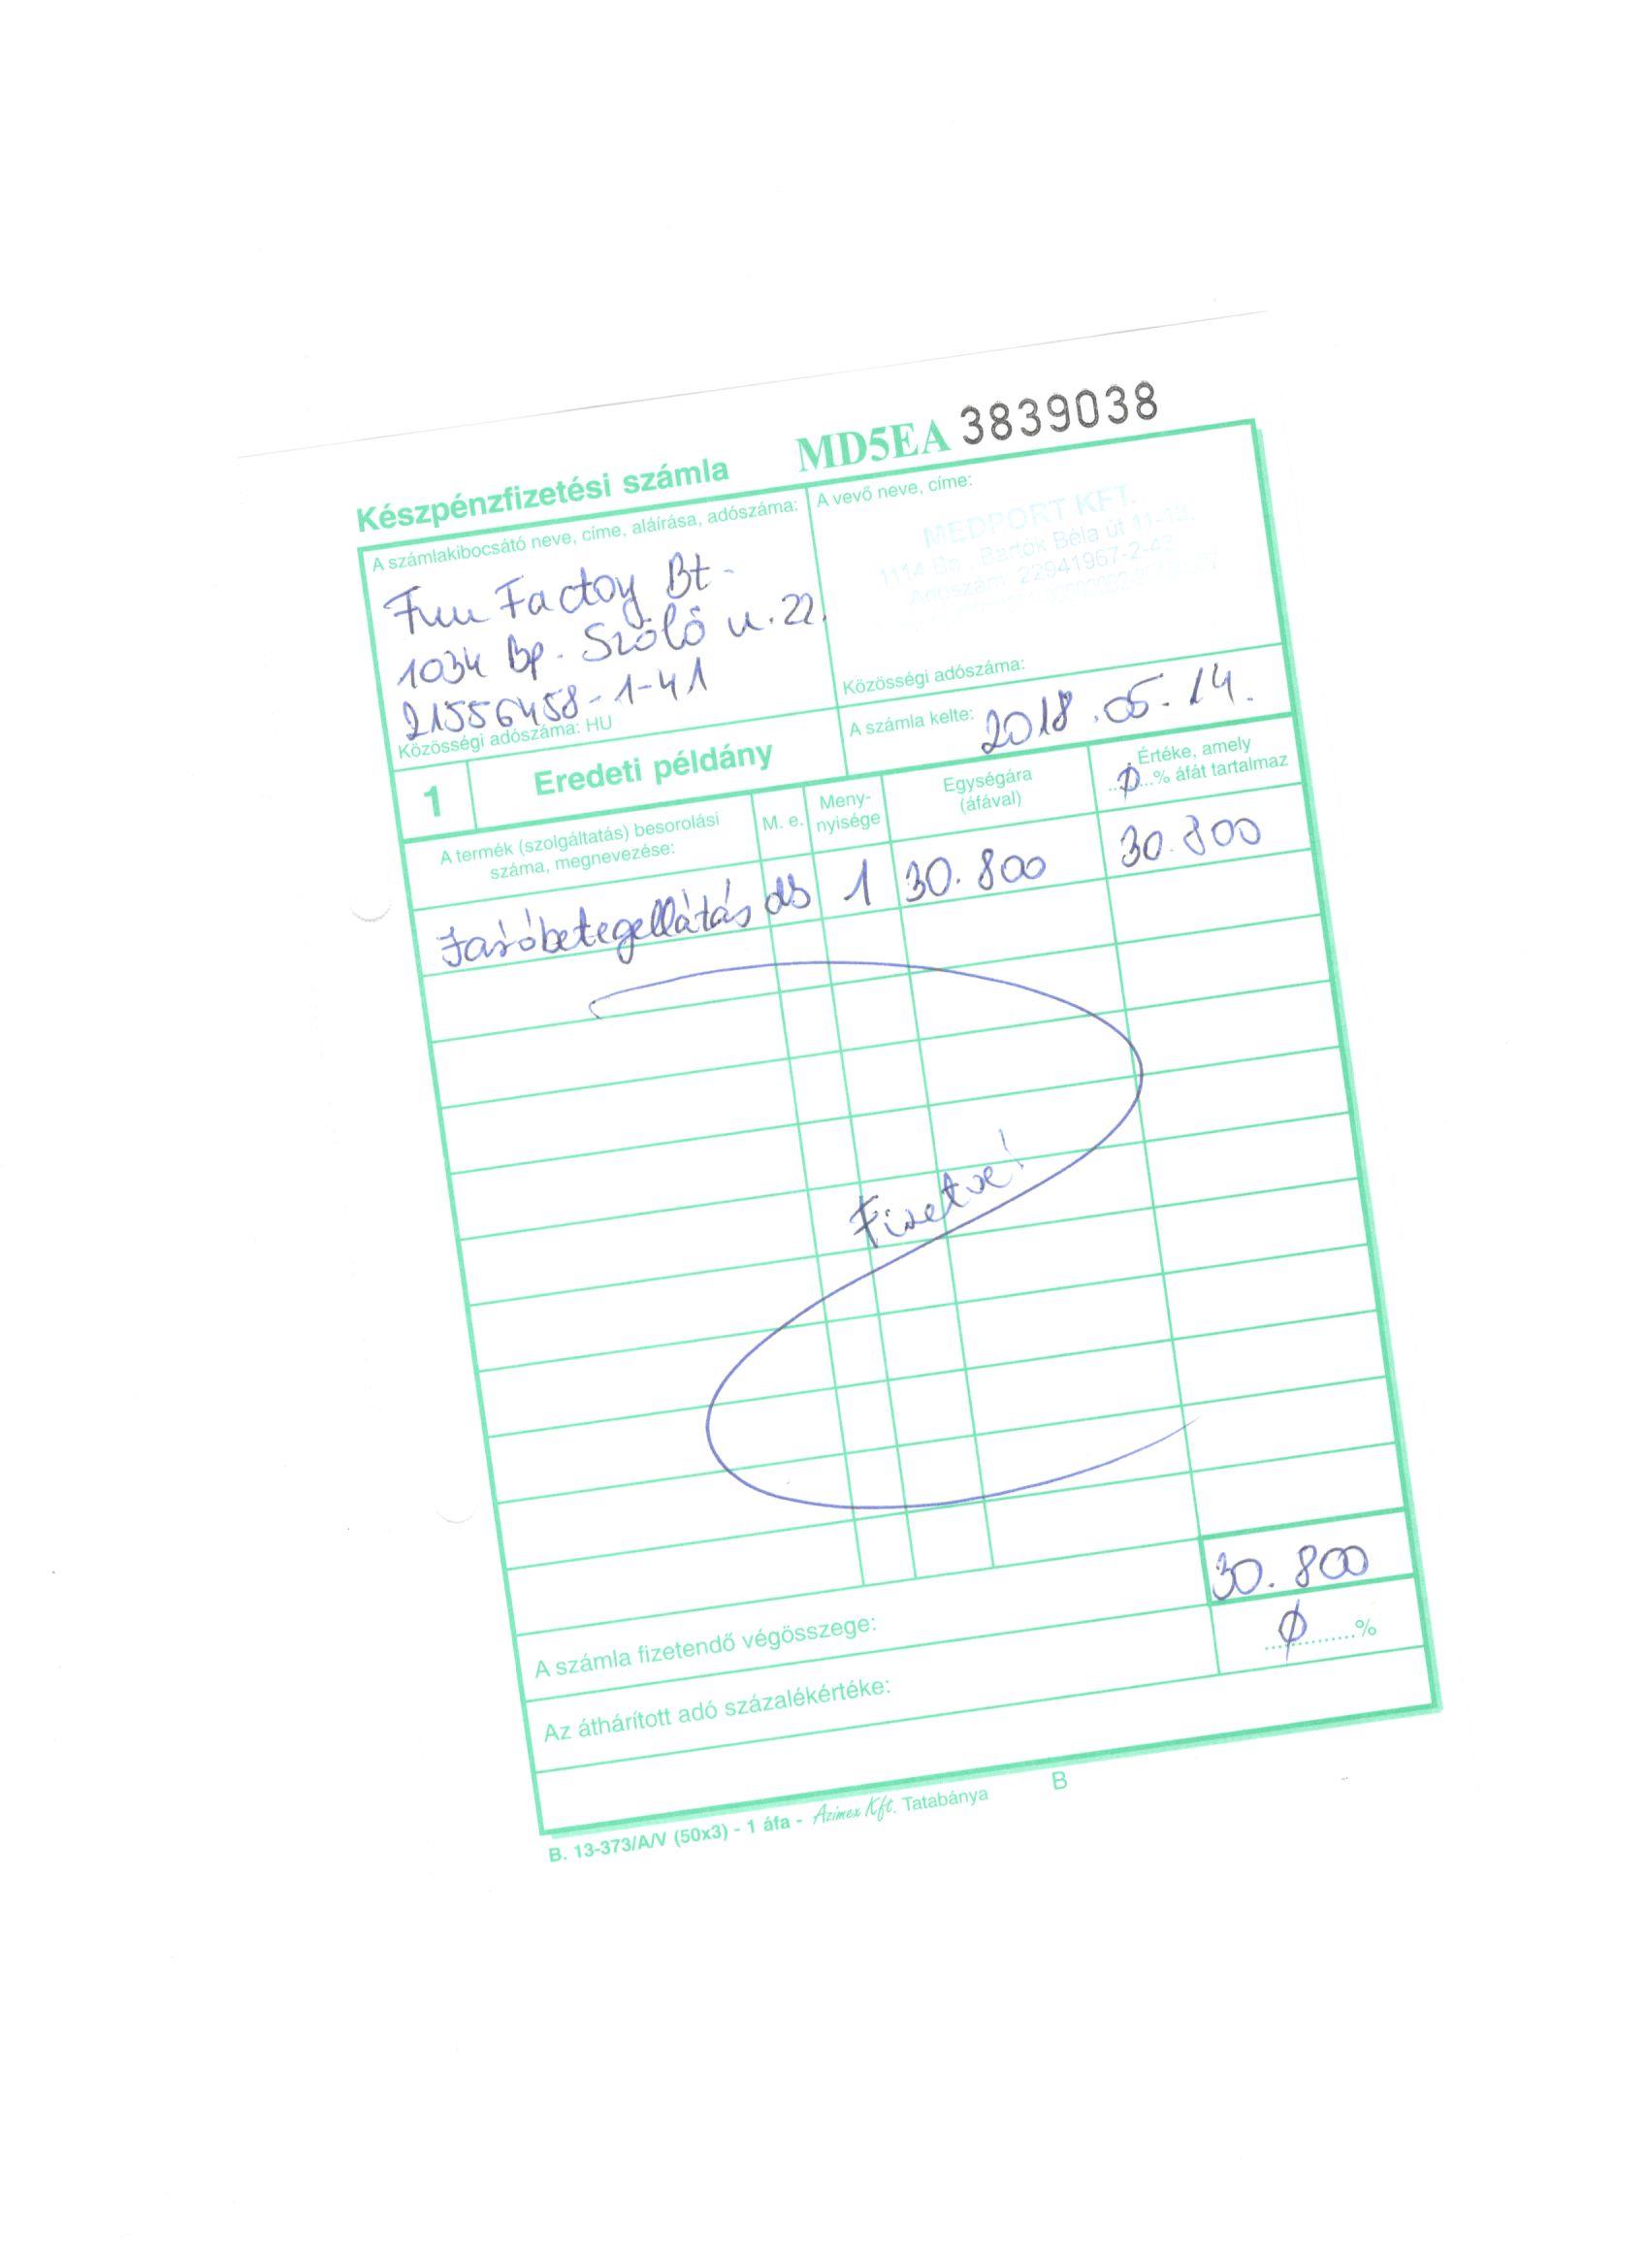 Készpénzfizetési számla MD5EA 3839038
A számlakibocsátó neve, címe, aláírása, adószáma:
Fun Factoy Bt.
1034 Bp. Szőlő u. 22.
21556458-1-41
Közösségi adószáma: HU
A vevő neve, címe:
MEDPORT KFT.
1114 Bp., Bartók Béla út 11-13.
Adószám: 22941967-2-43
Közösségi adószáma:
A számla kelte: 2018.05.14.
1 Eredeti példány
A termék (szolgáltatás) besorolási
száma, megnevezése:
M. e.
Meny-
nyisége
Egységára
(áfával)
Értéke, amely
Ø % áfát tartalmaz
Járóbetegellátás db 1 30.800 30.800
Fizetve!
A számla fizetendő végösszege: 30.800
Az áthárított adó százalékértéke: Ø %
B. 13-373/A/V (50x3) - 1 áfa - Azimex Kft. Tatabánya B